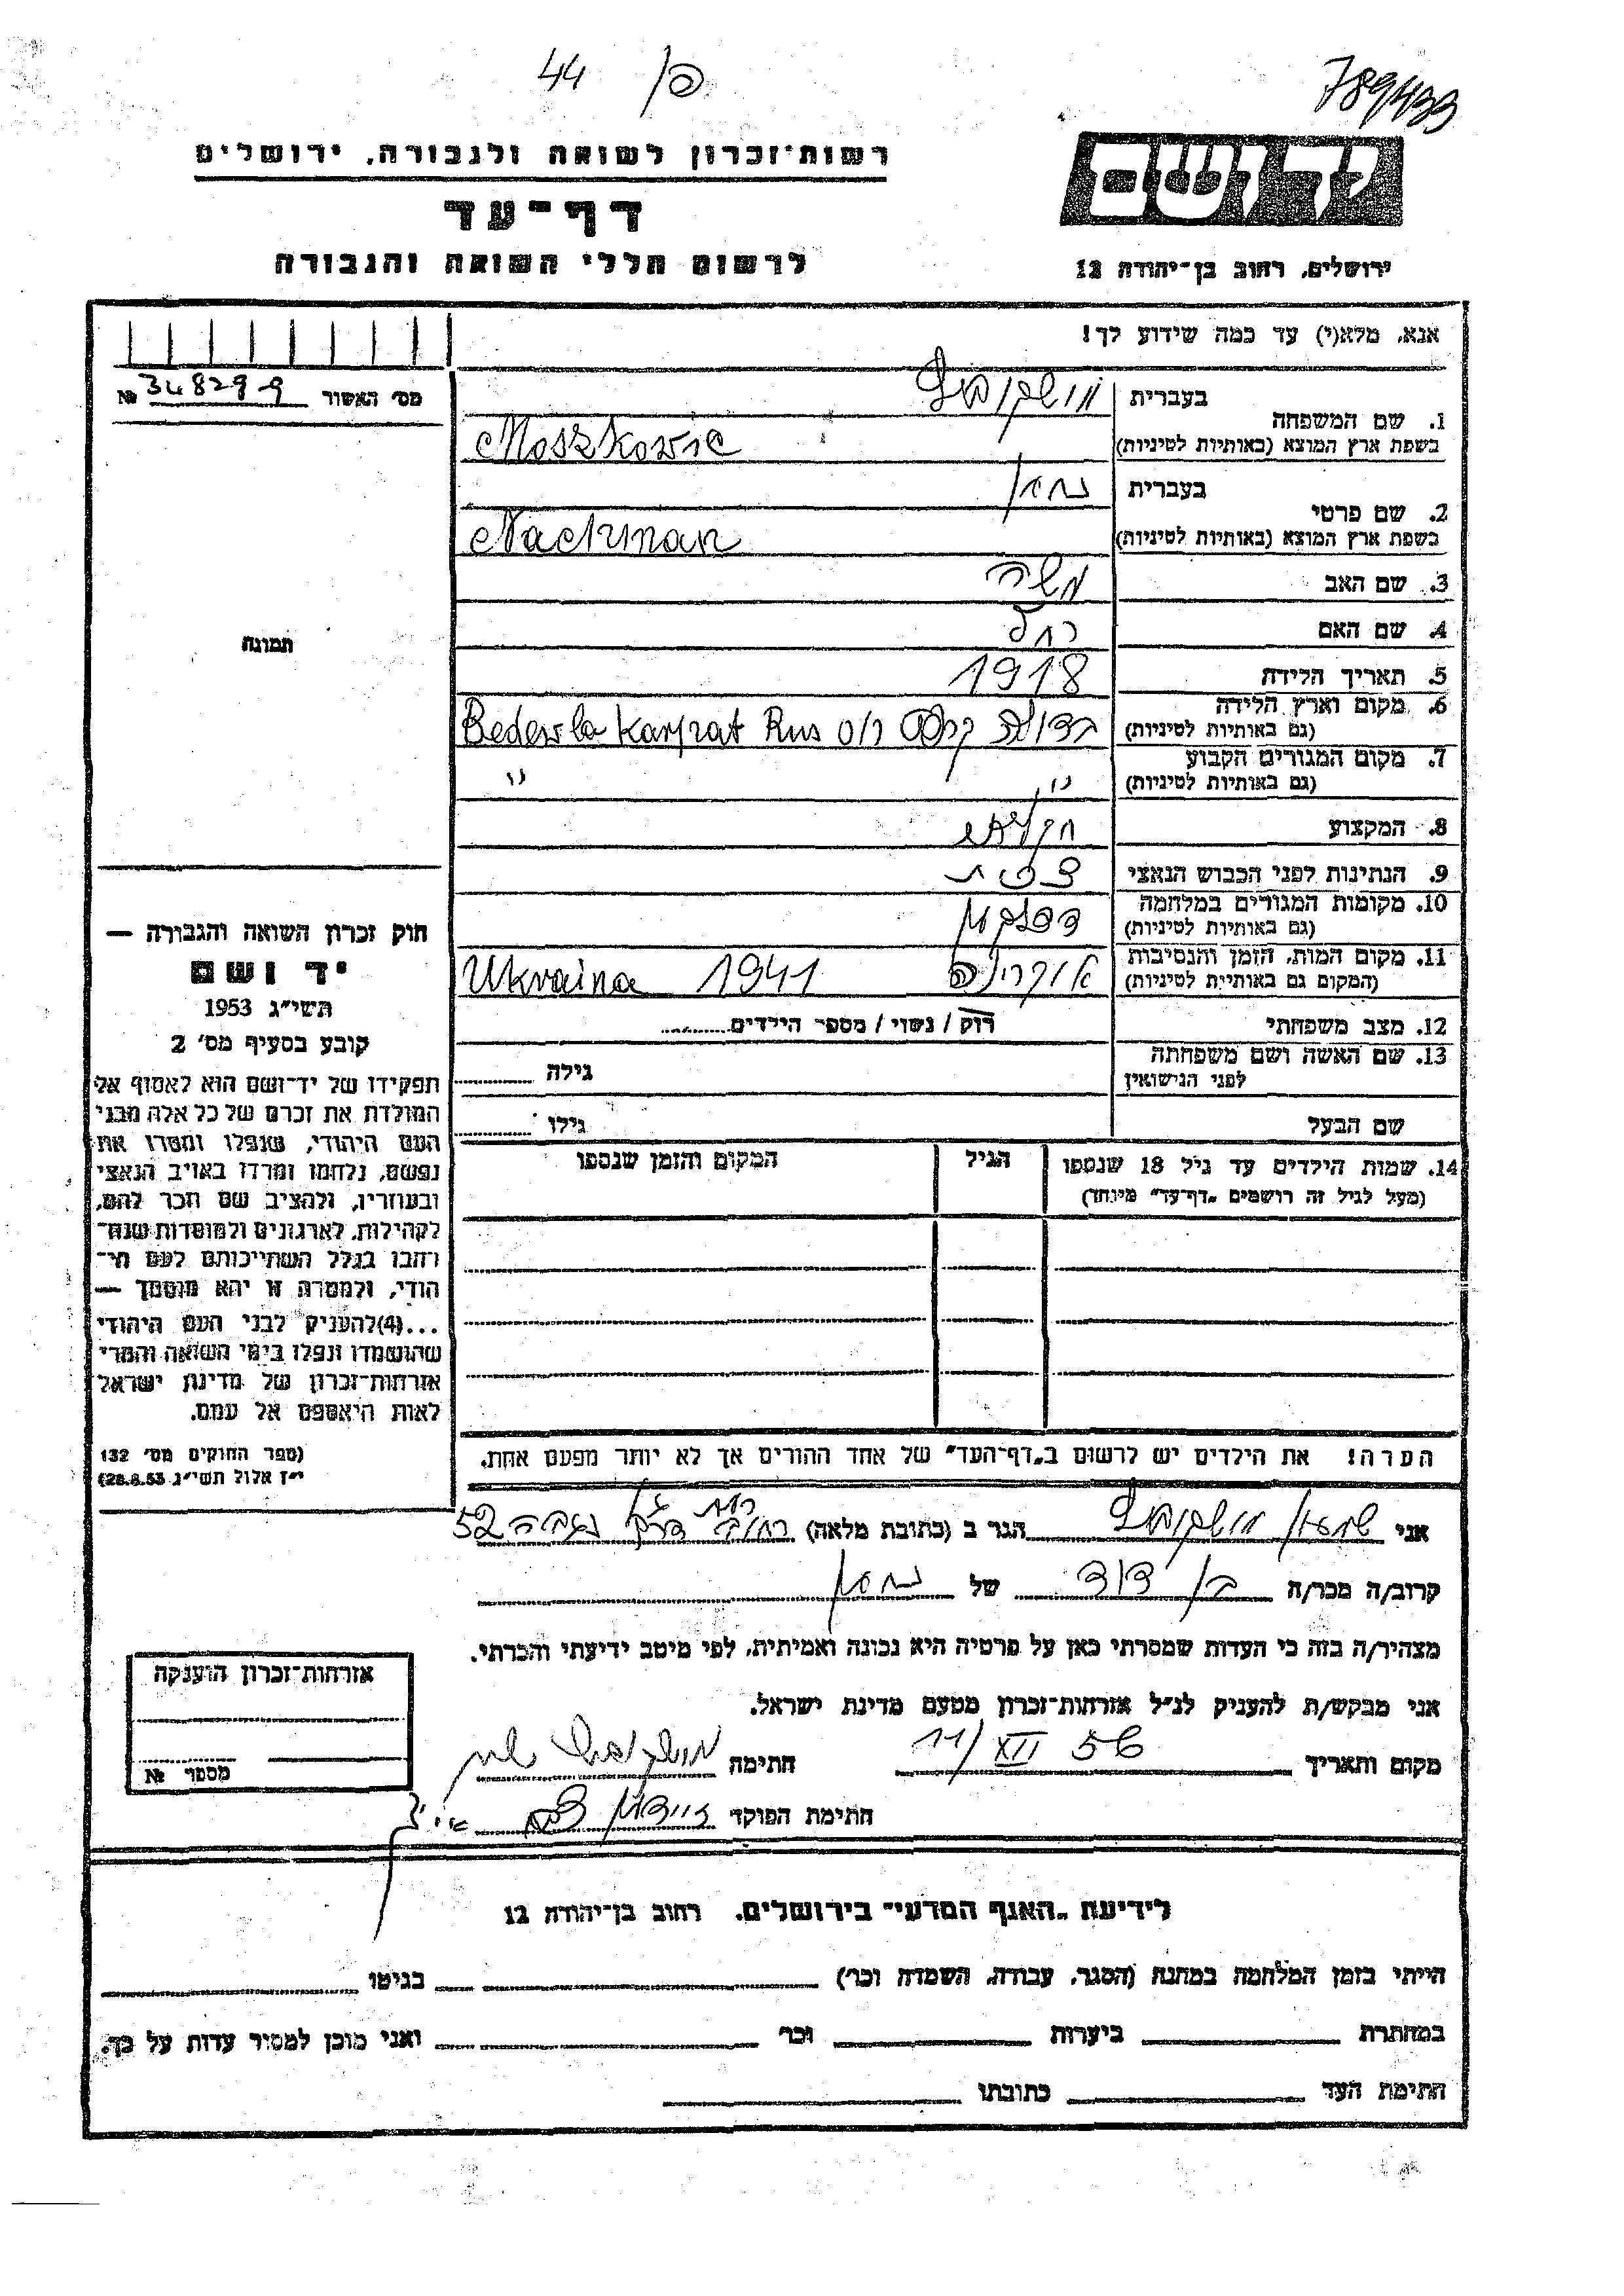 44 פ/
789433
רשות־זכרון לשואה ולגבורה, ירושלים
דף־עד
לרשום חללי השואה והגבורה
יד ושם
ירושלים, רחוב בן־יהודה 12
אנא, מלא(י) עד כמה שידוע לך!
מס׳ האשור № 348299
1. שם המשפחה בעברית מושקוביץ
בשפת ארץ המוצא (באותיות לטיניות) Moszkowic
2. שם פרטי בעברית נחמן
בשפת ארץ המוצא (באותיות לטיניות) Nachman
3. שם האב משה
4. שם האם רחל
תמונה
5. תאריך הלידה 1918
6. מקום וארץ הלידה
(גם באותיות לטיניות) Bedewla Karpat Rus
7. מקום המגורים הקבוע
(גם באותיות לטיניות) ״ ״
8. המקצוע חקלאי
9. הנתינות לפני הכבוש הנאצי צ׳כית
10. מקומות המגורים במלחמה
(גם באותיות לטיניות)
11. מקום המות, הזמן והנסיבות
(המקום גם באותיות לטיניות) אוקרינה 1941 Ukraina
12. מצב משפחתי רוק / נשוי / מספר הילדים
13. שם האשה ושם משפחתה
לפני הנישואין גילה
שם הבעל גילו
14. שמות הילדים עד גיל 18 שנספו הגיל המקום והזמן שנספו
(מעל לגיל זה רושמים „דף־עד״ מיוחד)
הערה! את הילדים יש לרשום ב„דף־העד״ של אחד ההורים אך לא יותר מפעם אחת.
חוק זכרון השואה והגבורה —
יד ושם
תשי״ג 1953
קובע בסעיף מס׳ 2
תפקידו של יד־ושם הוא לאסוף אל
המולדת את זכרם של כל אלה מבני
העם היהודי, שנפלו ומסרו את
נפשם, נלחמו ומרדו באויב הנאצי
ובעוזריו, ולהציב שם וזכר להם,
לקהילות, לארגונים ולמוסדות שנח־
רחבו בגלל השתייכותם לעם הי־
הודי, ולמטרה זו יהא מוסמך —
...(4)להעניק לבני העם היהודי
שהושמדו ונפלו בימי השואה והמרי
אזרחות־זכרון של מדינת ישראל
לאות היאספם אל עמם.
(ספר החוקים מס׳ 132
י״ז אלול תשי״ג 28.8.53)
אני שמעון מושקוביץ הגר ב (כתובת מלאה) רמת גן רחוב דרך נגבה 52
קרוב/ה מכר/ה בן דוד של נחמן
מצהיר/ה בזה כי העדות שמסרתי כאן על פרטיה היא נכונה ואמיתית, לפי מיטב ידיעתי והכרתי.
אני מבקש/ת להעניק לנ״ל אזרחות־זכרון מטעם מדינת ישראל.
מקום ותאריך 11/XII 56 חתימה
חתימת הפוקד
אזרחות־זכרון הוענקה
מספר №
לידיעת „האגף המדעי״ בירושלים, רחוב בן־יהודה 12
הייתי בזמן המלחמה במחנה (הסגר, עבודה, השמדה וכר) בגיטו
במחתרת ביערות וכר ואני מוכן למסיר עדות על כך.
חתימת העד כתובתו